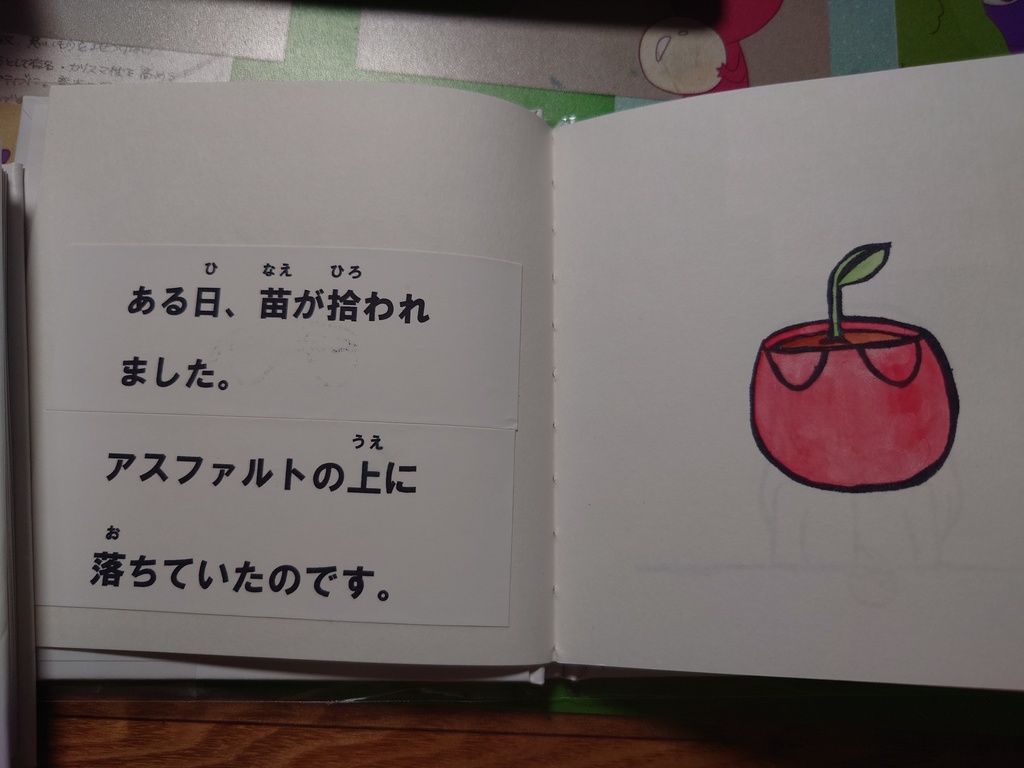 ひ なえ ひろ
ある日、苗が拾われ
ました。
うえ
アスファルトの上に
お
落ちていたのです。